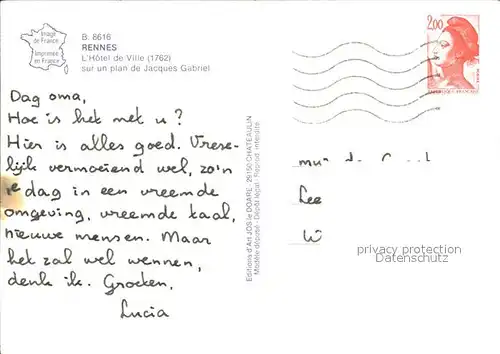 Image
de France
Imprimée
en France
B. 8616
RENNES
L'Hôtel de Ville (1762)
sur un plan de Jacques Gabriel
Dag oma,
Hoe is het met u?
Hier is alles goed. Vrese-
lijk vermoeiend wel, zo'n
1e dag in een vreemde
omgeving, vreemde taal,
nieuwe mensen. Maar
het zal wel wennen,
denk ik. Groeten,
Lucia
Editions d'Art JOS le DOARE - 29150 CHATEAULIN
Modèle déposé - Dépôt légal / Reprod. interdite
2,00
REPUBLIQUE FRANÇAISE
Lee
privacy protection
Datenschutz